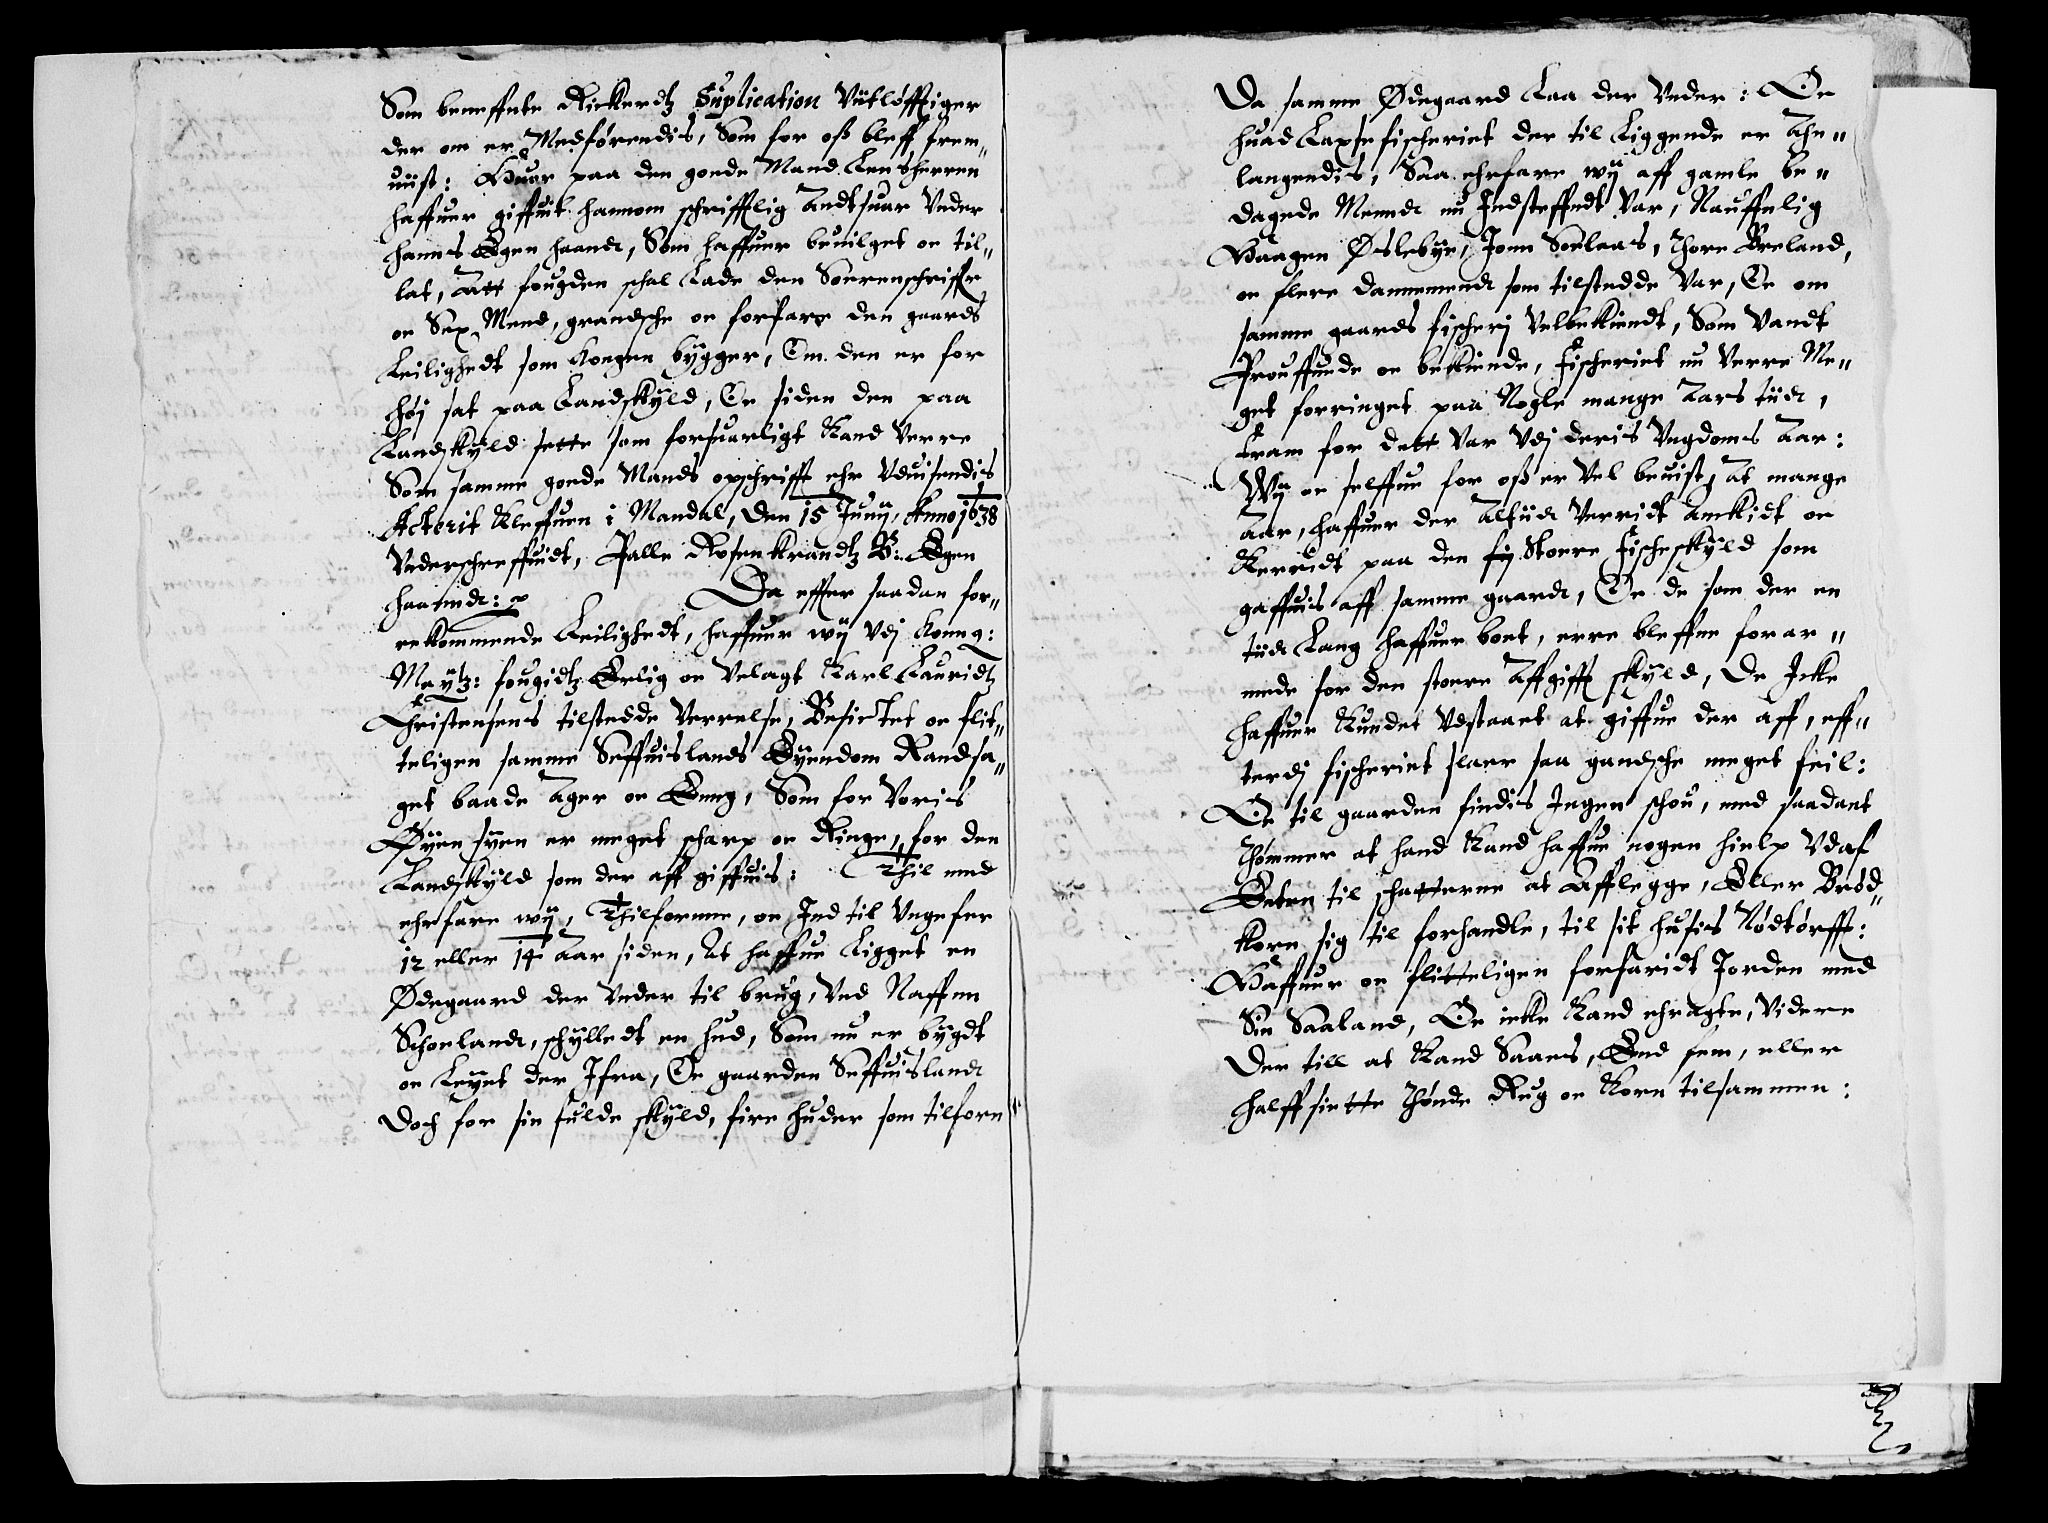 Som beneffnte Rickerdtz Suplication Vittløfftiger
der om er Medførendis, Som for oß bleff frem„
uiist: Huor paa den goede Mand Lensherren
haffuer giffuit hannom schrifftlig Andtsuar Vnder
hanns Egen haandt, Som haffuer beuilget oc til„
lat, Att fougden schal Lade den Sorenschriffr
oc Sex Mend, grandsche oc forfare den gaards
Leilighedt som Kongen bygger, Om den er for
høj sat paa Landskyld, Oc siden den paa
Landskyld sette som forsuarligt Kand Verre
Som samme goede Mands opschrifft ehr Vduisendis
Acterit Kleffuen i Mandal, den 15 Junij, Anno 1638
Vnderschreffuidt, Palle Rosenkrandtz B: Egen
haandt: p Da effter saadan for„
rekommende Leilighedt, haffuer wij Vdj Konng:
Maytz: fougidtz Erlig oc Velagt Karl Lauridtz
Christensens tilstedde Verrelse, Besictet oc flit„
teligen samme Seffuislands Eyendom Randsa„
get baade Ager oc Enng, Som for Voris
Øyen syen er meget scharp oc Ringe, for den
Landskyld som der aff giffuis: Thil med
ehrfare wij, Thilforne, oc Ind til Vngefer
12 eller 14 Aar siden, At haffue Ligget en
Ødegaard der Vnder til brug, Ved Naffen
Schoelandt, schylledt en hud, Som nu er bygdt
oc Leyet der Ifra, Oc gaarden Seffuislandt
Doch for sin fulde skyld, fire huder som tilforn
Da samme Ødegaard Laa der Vnder: Oc
huad Laxsefischeriet der til Liggende er Ahn„
langendis, Saa ehrfare wij aff gamle be„
dagede Menndt nu Indsteffndt Var, Nauffnlig
Haagen Øslebye, Jonn Søelaas, Thore Breland,
oc flere dannemendt som tilstedde Var, Oc om
samme gaards fischerj Velbekiendt, Som Vandt
Prouffuede oc bekiende, fischeriet nu Verre Me„
get forringet paa Nogle mange Aars tiidt,
fram for dett Var Vdj deris Vngdoms Aar:
Wij oc selffue for oß er Vel beuist, At mange
Aar, haffuer der Altiidt Verridt Anckidt oc
Kerridt paa den fij Stoere fischeskyld som
gaffuis aff samme gaardt, Oc de som der en
tiidt Lang haffuer boet, erre bleffne forar„
mede for den stoere Affgifft skyld, De Icke
haffuer Kundet Vdstaaet at giffue der aff, eff„
terdj fischeriet slaer saa gandsche meget feil:
Oc til gaarden findis Ingen schou, med saadant
Thømmer at hand Kand haffue nogen hielp Vdaf
Enten til schatterne at Afflegge, Eller Brød„
korn sig til forhandle, til sit husis Nødtørfft:
Haffuer oc flitteligen forfaridt Jorden med
Sin Saaland, Oc icke Kand ehragte, Videre
Der till at Kand Saaes, End fem, eller
halffsiette Thønde Rug oc Korn tilsammen: